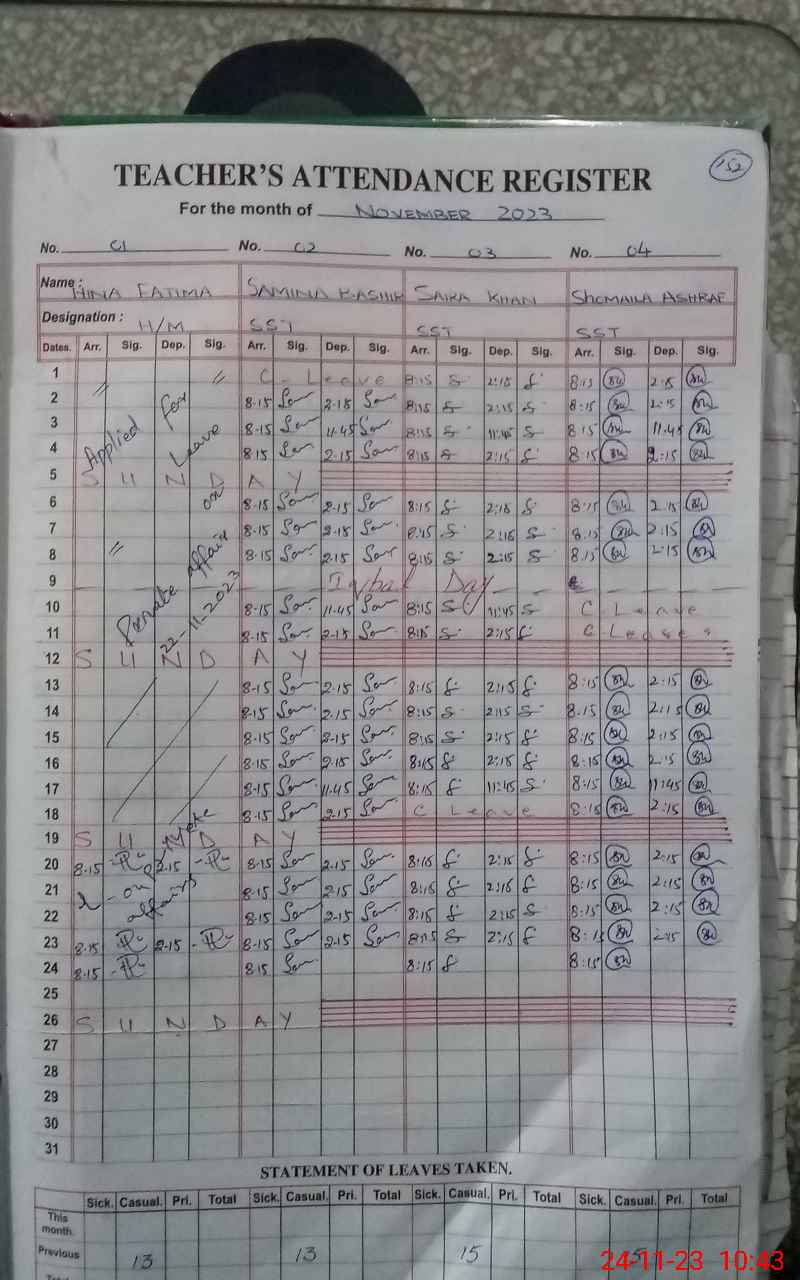 152
TEACHER'S ATTENDANCE REGISTER
For the month of NOVEMBER 2023
No. 01 No. 02 No. 03 No. 04
Name : HINA FATIMA SAMINA BASHIR SAIRA KHAN SHOMAILA ASHRAF
Designation : H/M SST SST SST
Dates. Arr. Sig. Dep. Sig. Arr. Sig. Dep. Sig. Arr. Sig. Dep. Sig. Arr. Sig. Dep. Sig.
1 〃 〃 C-Leave 8:15 2:15 8:15 2:15
2 for 8.15 2.15 8:15 2:15 8:15 2:15
3 Applied 8.15 11.45 8:15 11:45 8:15 11.45
4 Leave 8.15 2.15 8:15 2:15 8:15 2:15
5 SUNDAY
6 on 8.15 2.15 8:15 2:15 8:15 2.15
7 8.15 2.15 8:15 2:15 8.15 2:15
8 〃 affair 8.15 2.15 8:15 2:15 8.15 2:15
9 Iqbal Day
10 22-11-2023 8.15 11.45 8:15 11:45 C Leave
11 8.15 2.15 8:15 2:15 C Leave
12 SUNDAY
13 8.15 2.15 8:15 2:15 8:15 2:15
14 8.15 2.15 8:15 2:15 8.15 2:15
15 8.15 2.15 8:15 2:15 8:15 2:15
16 8.15 2.15 8:15 2:15 8:15 2:15
17 8.15 11.45 8:15 11:45 8:15 11:45
18 8.15 2.15 C Leave 8:15 2:15
19 SUNDAY
20 8.15 2.15 8.15 2.15 8:15 2:15 8:15 2:15
21 on 8.15 2.15 8:15 2:15 8:15 2:15
22 affairs 8.15 2.15 8:15 2:15 8:15 2:15
23 8.15 2.15 8.15 2.15 8:15 2:15 8:15 2:15
24 8.15 8.15 8:15 8:15
25
26 SUNDAY
27
28
29
30
31
STATEMENT OF LEAVES TAKEN.
Sick. Casual. Pri. Total Sick. Casual. Pri. Total Sick. Casual. Pri. Total Sick. Casual. Pri. Total
This month.
Previous 13 13 15
24-11-23 10:43